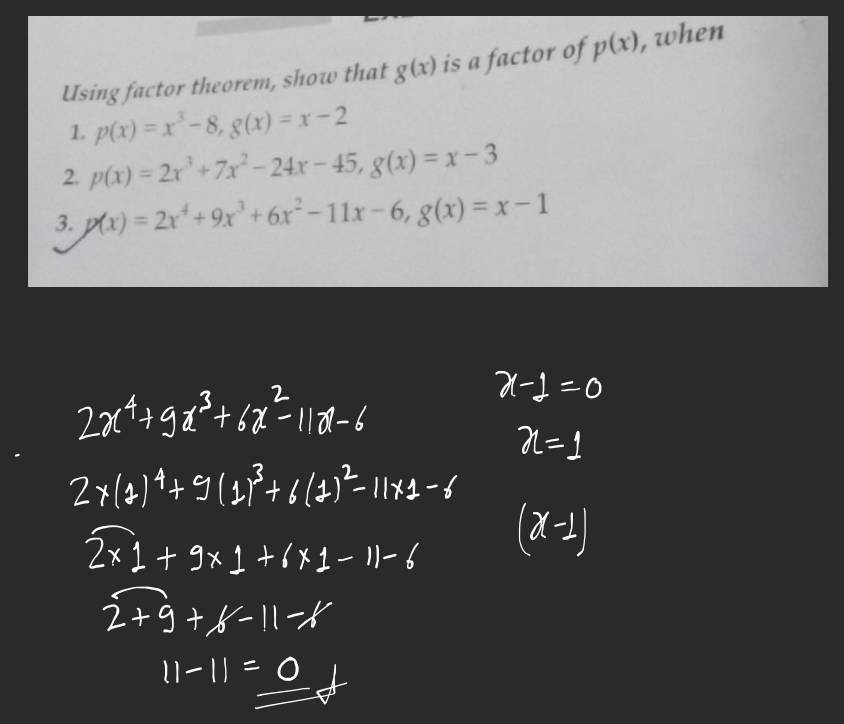 Using factor theorem, show that g(x) is a factor of p(x), when
1. p(x) = x³ – 8, g(x) = x – 2
2. p(x) = 2x³ + 7x² – 24x – 45, g(x) = x – 3
3. p(x) = 2x⁴ + 9x³ + 6x² – 11x – 6, g(x) = x – 1
2x⁴+9x³+6x²-11x-6
2×(1)⁴+9(1)³+6(1)²-11×1-6
2×1+9×1+6×1-11-6
2+9+6-11-6
11-11=0
x-1=0
x=1
(x-1)